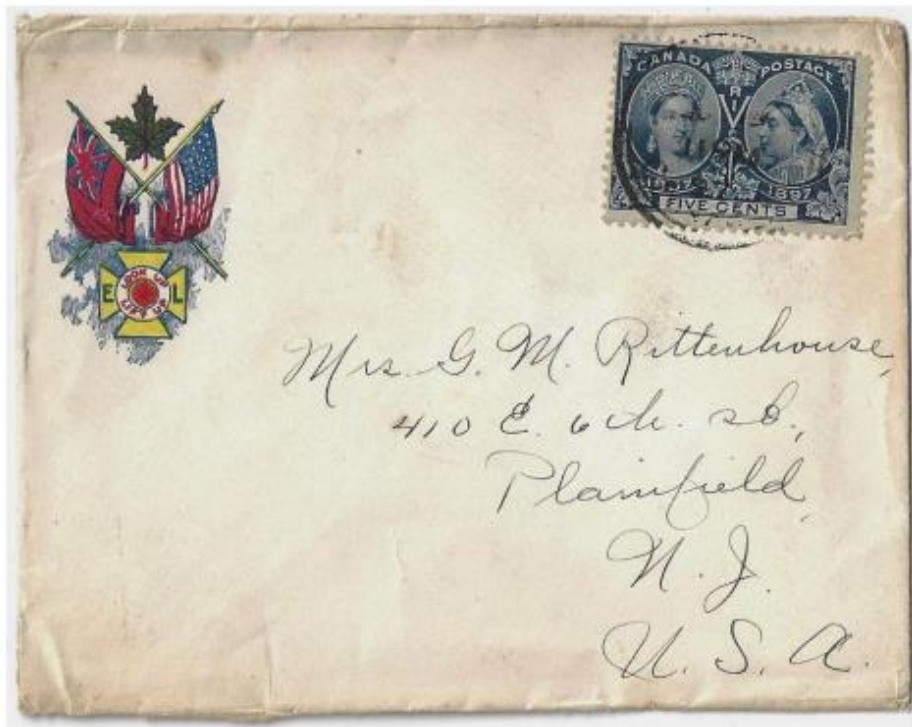 CANADA POSTAGE
1837 1897
FIVE CENTS
LOOK UP
E L
LIFT UP
Mrs. G. M. Rittenhouse,
410 E. 6th. st.,
Plainfield,
N. J.
U. S. A.